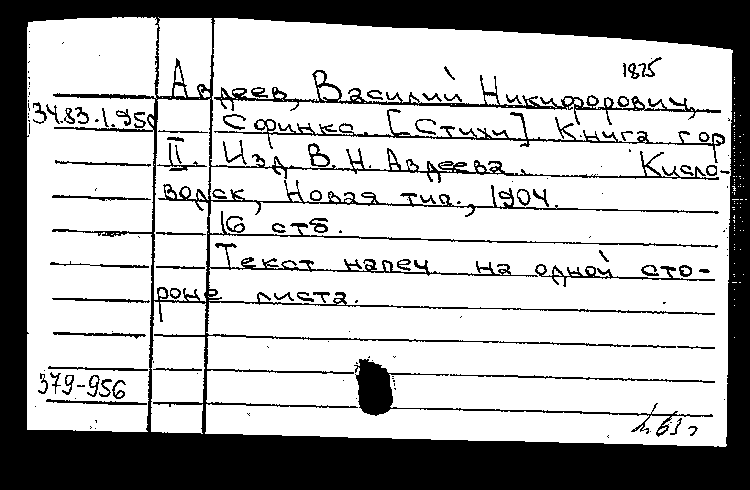 1875
Авдеев, Василий Никифорович,
Сфинкс. [Стихи]. Книга гор
34.83.1.950
II. Изд. В. Н. Авдеева. Кисло-
водск, Новая тип., 1904.
16 стб.
Текст напеч. на одной сто-
роне листа.
379-956